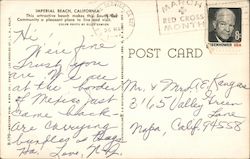 IMPERIAL BEACH, CALIFORNIA
This attractive beach makes this South Bay
Community a pleasant place to live and visit.
MARCH
RED CROSS
MONTH
EISENHOWER·USA
POST CARD
Hi
We're fine
Trust you
are. We are
at the border
of Mexico just
came back
are carrying
bundles as
Ha. Love,
Mr. & Mrs. E. Kangas
3165 Valley Green
Lane
Napa, Calif. 94558